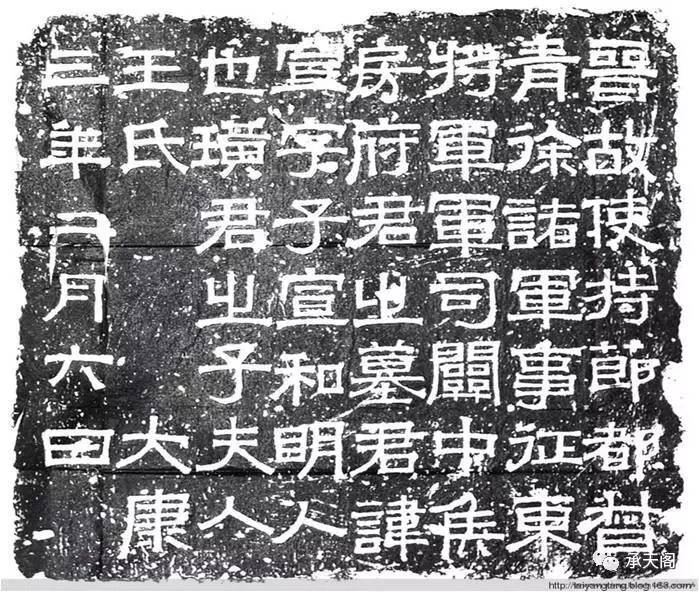 晉故使持節都督
青徐諸軍事征東
將軍軍司關中侯
房府君之墓君諱
宣字子宣和明人
也璜君之子夫人
王氏 大康
三年 月六日
承天阁
http://taiyangtang.blog.163.com/